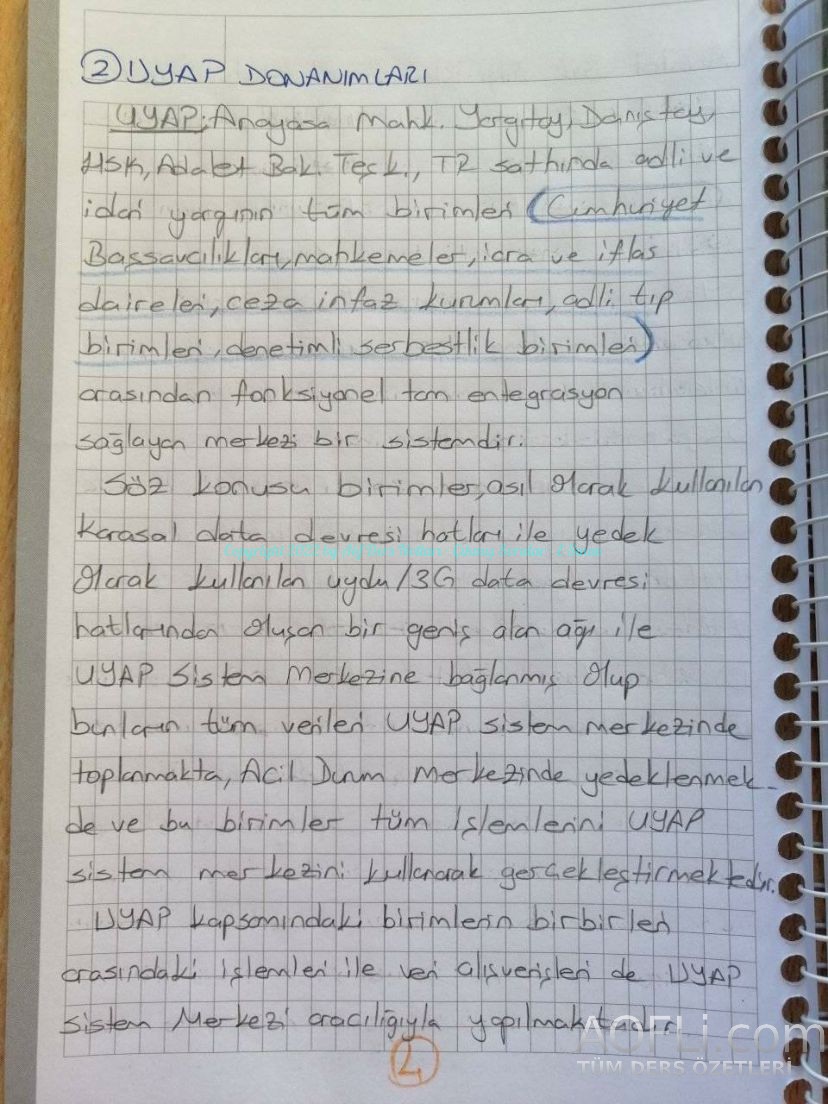 2 UYAP DONANIMLARI
UYAP; Anayasa Mahk. Yargıtay, Danıştay,
HSK, Adalet Bak. Teşk., TR sathında adli ve
idari yargının tüm birimleri (Cumhuriyet
Başsavcılıkları, mahkemeler, icra ve iflas
daireleri, ceza infaz kurumları, adli tıp
birimleri, denetimli serbestlik birimleri)
arasından fonksiyonel tam entegrasyon
sağlayan merkezi bir sistemdir.
Söz konusu birimler, asıl olarak kullanılan
karasal data devresi hatları ile yedek
olarak kullanılan uydu/3G data devresi
hatlarından oluşan bir geniş alan ağı ile
UYAP Sistem Merkezine bağlanmış olup
bunların tüm verileri UYAP sistem merkezinde
toplanmakta, Acil Durum merkezinde yedeklenmek-
de ve bu birimler tüm işlemlerini UYAP
sistem merkezini kullanarak gerçekleştirmektedir.
UYAP kapsamındaki birimlerin birbirleri
arasındaki işlemleri ile veri alışverişleri de UYAP
Sistem Merkezi aracılığıyla yapılmaktadır.
2
AOFLi.com
TÜM DERS ÖZETLERİ